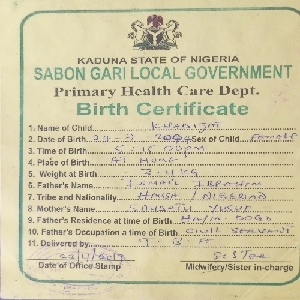 KADUNA STATE OF NIGERIA
SABON GARI LOCAL GOVERNMENT
Primary Health Care Dept.
Birth Certificate
1. Name of Child
2. Date of Birth Sex of Child Female
3. Time of Birth
4. Place of Birth At Home
5. Weight at Birth
6. Father's Name Ismail Ibrahim
7. Tribe and Nationality Hausa / Nigerian
8. Mother's Name Yusuf
9. Father's Residence at time of Birth Dogo
10. Father's Occupation at time of Birth Civil Servant
11. Delivered by Sister
Date of Office Stamp Midwifery/Sister in-charge